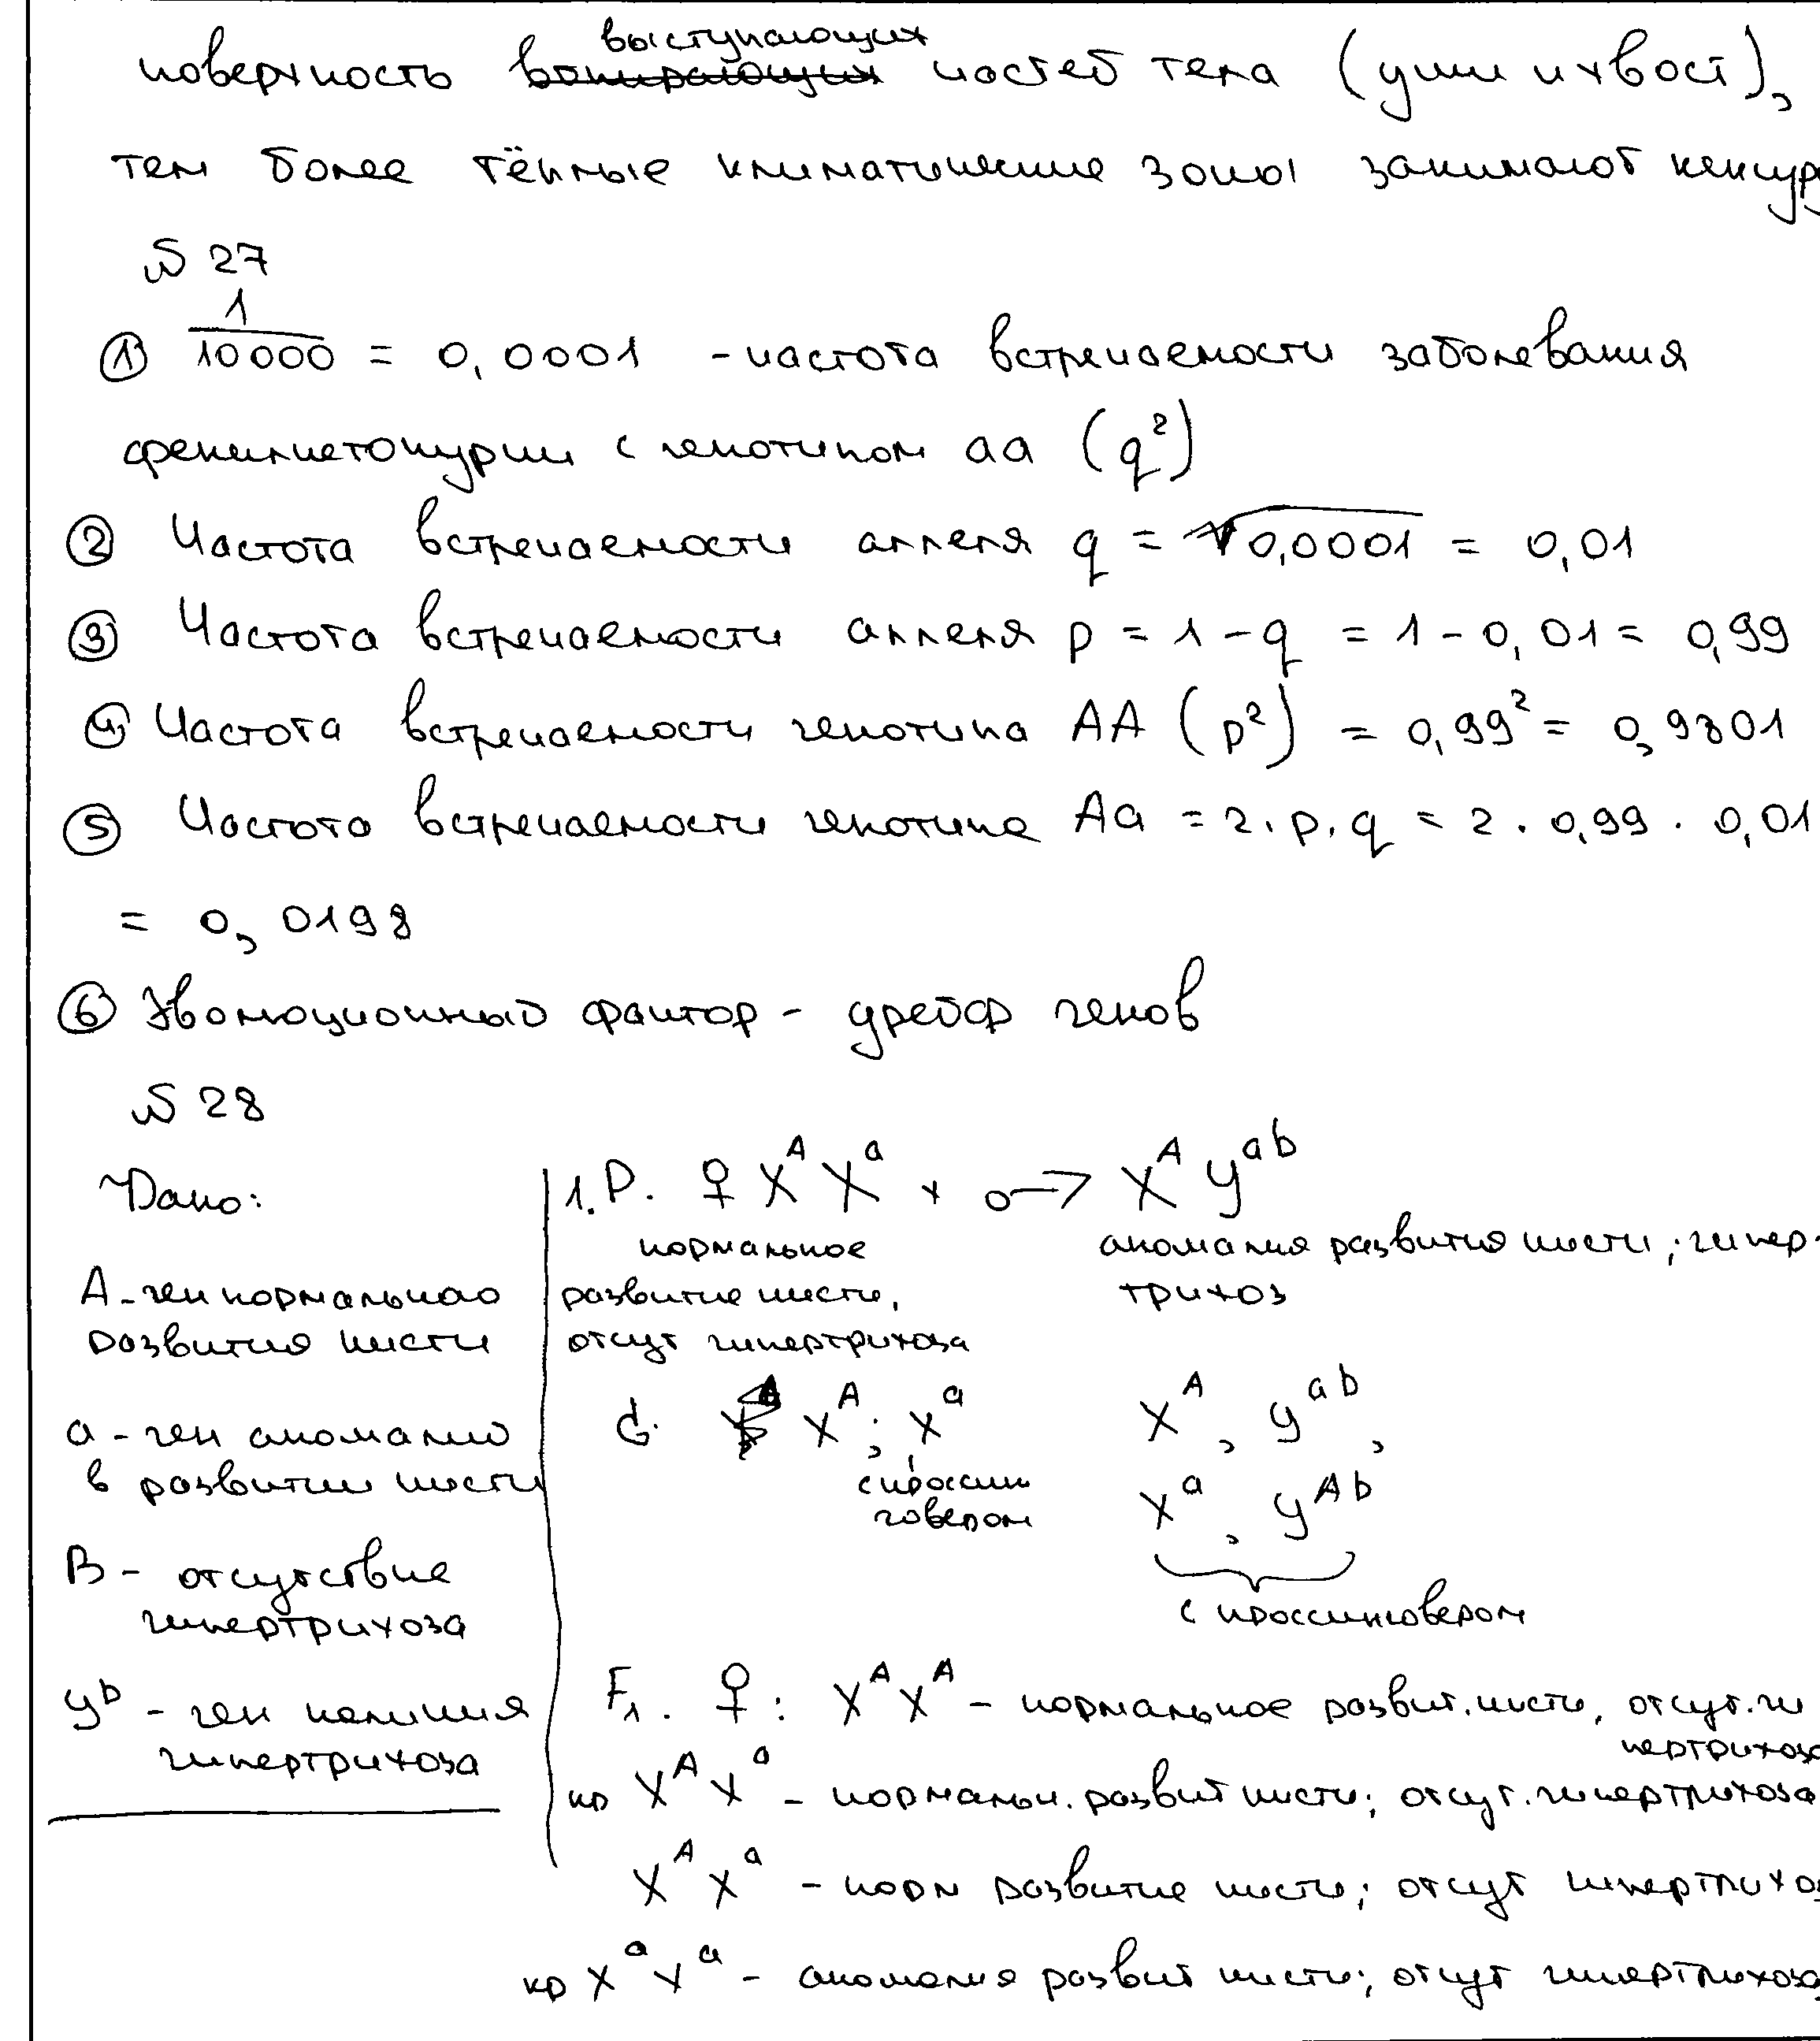 выступающих
поверхность частей тела (уши и хвост),
тем более тёплые климатические зоны занимают кенгуру
№ 27
① 1/10000 = 0,0001 - частота встречаемости заболевания
фенилкетонурии с генотипом aa (q²)
② Частота встречаемости аллеля q = √0,0001 = 0,01
③ Частота встречаемости аллеля p = 1 - q = 1 - 0,01 = 0,99
④ Частота встречаемости генотипа AA (p²) = 0,99² = 0,9801
⑤ Частота встречаемости генотипа Aa = 2·p·q = 2 · 0,99 · 0,01
= 0,0198
⑥ Эволюционный фактор - дрейф генов
№ 28
Дано:
A - ген нормального
развития кисти
a - ген аномалий
в развитии кисти
B - отсутствие
гипертрихоза
yᵇ - ген наличия
гипертрихоза
1. P. ♀ Xᴬ Xᵃ × ♂ Xᴬ Yᵃᵇ
нормальное
развитие кисти,
отсут гипертрихоза
аномалия развития кисти; гипер-
трихоз
G. Xᴬ; Xᵃ
с кроссин
говером
Xᴬ, Yᵃᵇ,
Xᵃ, Yᴬᵇ
с кроссинговером
F₁. ♀: XᴬXᴬ - нормальное развит. кисти, отсут. ги
пертрихоза
кр XᴬXᵃ - нормальн. развит кисти; отсут. гипертрихоза
XᴬXᵃ - норм развитие кисти; отсут гипертрихоз
кр XᵃXᵃ - аномалия развит кисти; отсут гипертрихоза